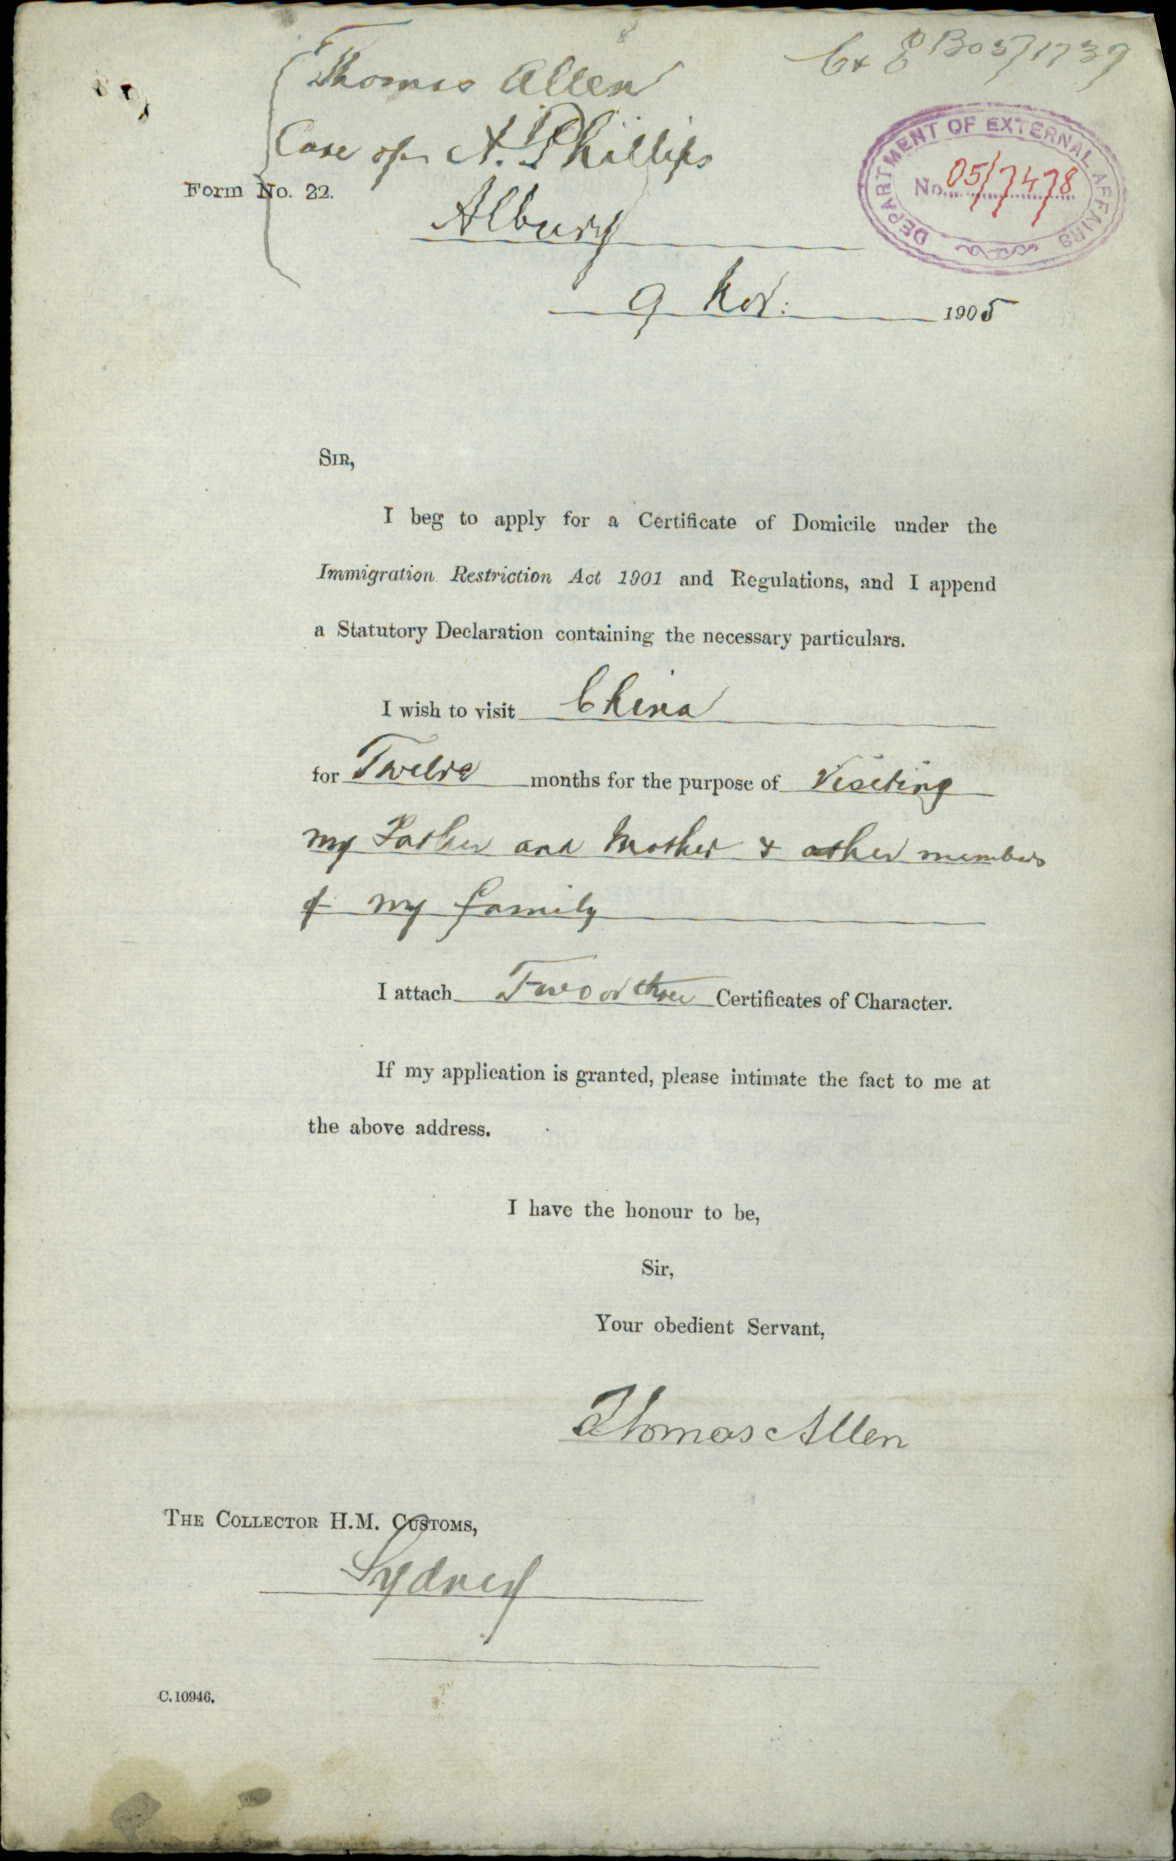 Thomas Allen
C & E B 05/1739
Care of A. Phillips
Form No. 22.
Albury
DEPARTMENT OF EXTERNAL AFFAIRS
No. 05/7478
9 Nov: 1905
SIR,
I beg to apply for a Certificate of Domicile under the
Immigration Restriction Act 1901 and Regulations, and I append
a Statutory Declaration containing the necessary particulars.
I wish to visit China
for Twelve months for the purpose of Visiting
my Father and Mother & other members
of my family
I attach Two or three Certificates of Character.
If my application is granted, please intimate the fact to me at
the above address.
I have the honour to be,
Sir,
Your obedient Servant,
Thomas Allen
THE COLLECTOR H.M. CUSTOMS,
Sydney
C.10946.